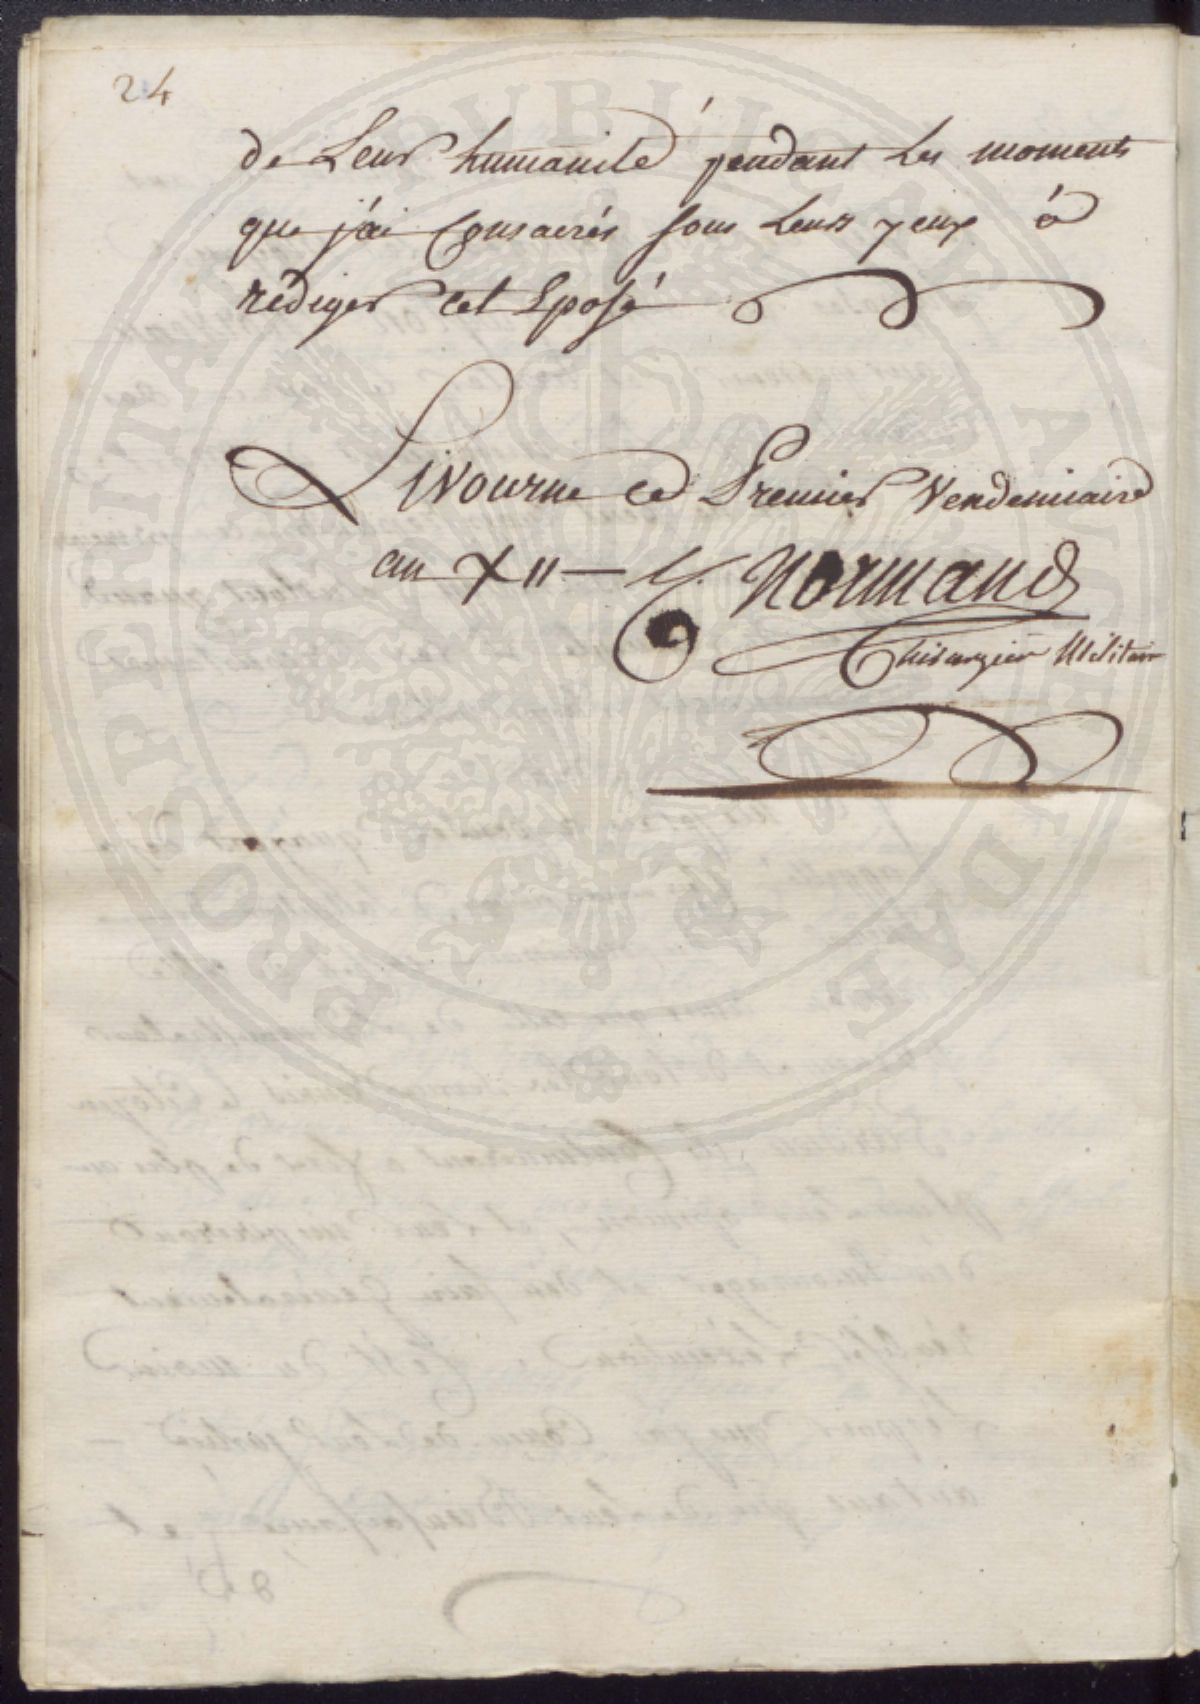 24
de Leur humanité pendant les moments
que j'ai Consacrés sous leurs yeux à
rédiger cet Exposé
Livourne ce Premier Vendemiaire
an XII — Normand
Chirurgien Militair
PROSPERITATI PUBLICAE AUGENDAE